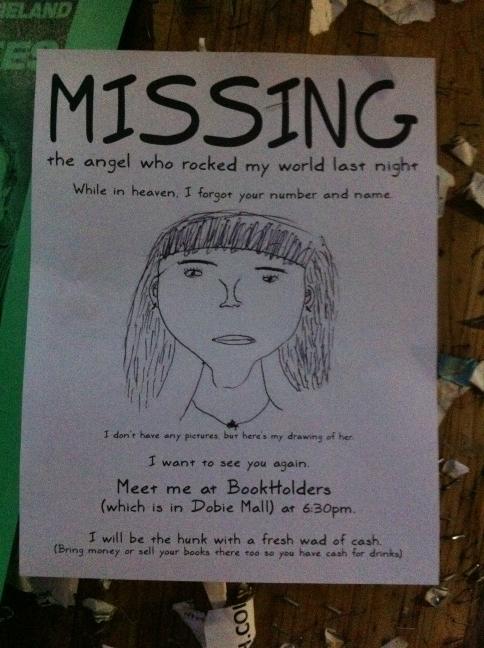 IELAND
ES
MISSING
the angel who rocked my world last night
While in heaven, I forgot your number and name.
I don't have any pictures, but here's my drawing of her.
I want to see you again.
Meet me at BookHolders
(which is in Dobie Mall) at 6:30pm.
I will be the hunk with a fresh wad of cash.
(Bring money or sell your books there too so you have cash for drinks)
H.COM